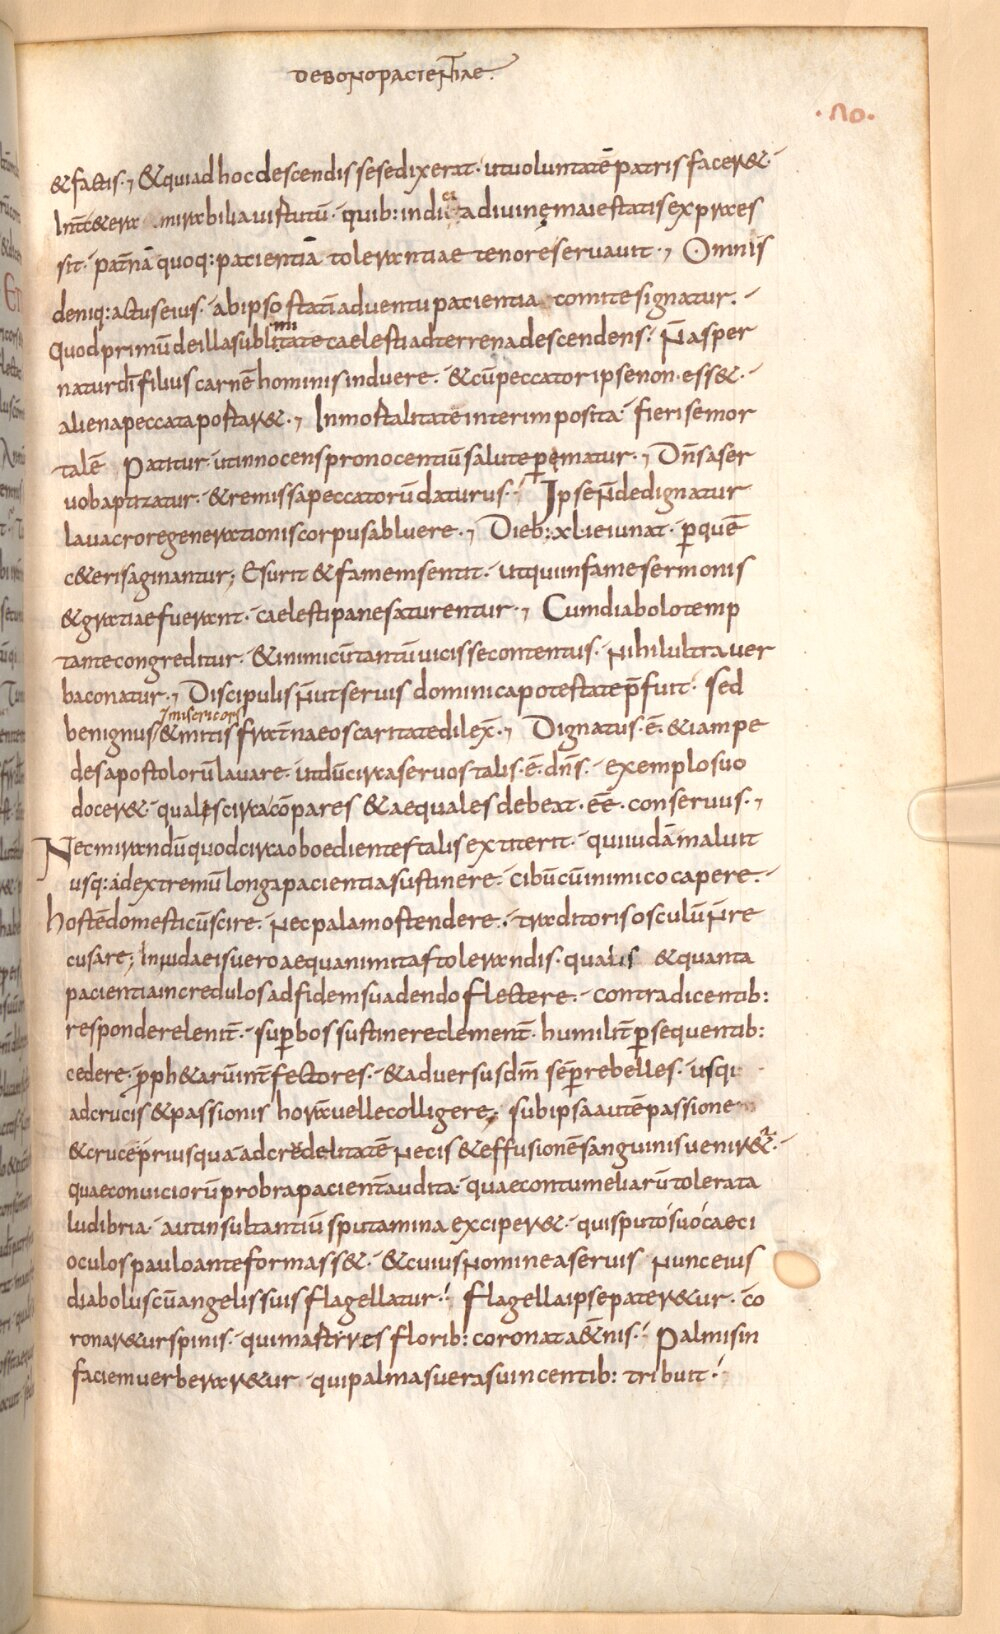 DEBONOPACIENTIAE.
·Λ0·
&factis·, &quiadhocdescendissesedixerat· utuoluntatē patris facer&·
Int̄&era mirabiliauistutū· quib:indicia diuinę maiestatisexpraes
sit· pat̄nā quoq:pacientiā tolerantiae tenoreseruauit·, Omnis
deniq:actuseius· abipso statī aduentu pacientia comitesignatur.·
Quodprimūdeillasublimitatecaelestiadterrenadescendens· N̄ asper
naturdī filius carnē hominisinduere· &cūpeccatoripsenon·ess&·
alienapeccatapostar&·, Inmostalitateinterimposita· fierisemor
talē Patitur· utinnocenspronocentiūsalutep̄ematur·, Dn̄saser
uobaptizatur· &remissapeccatorūdaturus· IpseN̄dedignatur
lauacroregenerationiscorpusabluere·, Dieb:xl·ieiunat· p̄quē
c&erisaginantur; Esurit &famemsentit· utquiinfamesermonis
&gratiaefuerant· caelestipanesaturentur·, Cumdiabolotemp
tantecongreditur· &inimicūtantūuicissecontentus· Nihilultrauer
baconatur·, DiscipulisN̄utseruis dominicapotestatep̄fuit· sed
benignus&mitis frat̄naeoscaritatedilex̄·, Dignatus·ē·&iampe
7misericors
desapostolorūlauare· utdūcirraseruostalis·ē·dn̄s· exemplosuo
docer&· qualiscirracōpares &aequalesdebeat·ēē·conseruus·,
Necmirandūquodcirraoboedientestalisextiterit· quiiudāmaluit
usq:adextremūlongapacientiasustinere· cibūcūinimicocapere·
hostēdomesticūscire· Necpalamostendere· traditorisosculūN̄re
cusare; Iniudaeisueroaequanimitastolerandis· qualis &quanta
pacientiaincredulosadfidemsuadendo flectere· contradicentib:
responderelenit̄· sup̄bossustinereclement̄· humilit̄p̄sequentib:
cedere· p̄ph&arūint̄fectores· &aduersusdm̄ sēp̄rebelles· usqu
adcrucis&passionis horauellecolligere; subipsaautēpassione
&crucēpriusquāadcrēdelitatē Necis &effusionēsanguinisuenir&ur·
quaeconuiciorūprobrapacient̄audita· quaecontumeliarūtolerata
ludibria· autinsultantiūsputaminaexciper&· quisputo suo caeci
oculospauloanteformass&· &cuiusNomineaseruis Nunceius
diaboluscūangelissuisflagellatur· flagellaipsepater&ur·co
ronar&urspinis· quimastyres florib:coronata&n̄is· Palmisin
faciemuerberar&ur· quipalmasuerasuincentib:tribuit·